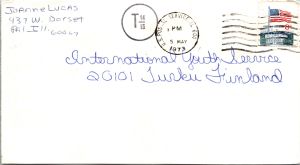 Joanne Lucas
437 W. Dorset
Ill 60067
T
U.S. POSTAL SERVICE
PM
5 MAY
1973
International Youth Service
20101 Turku Finland